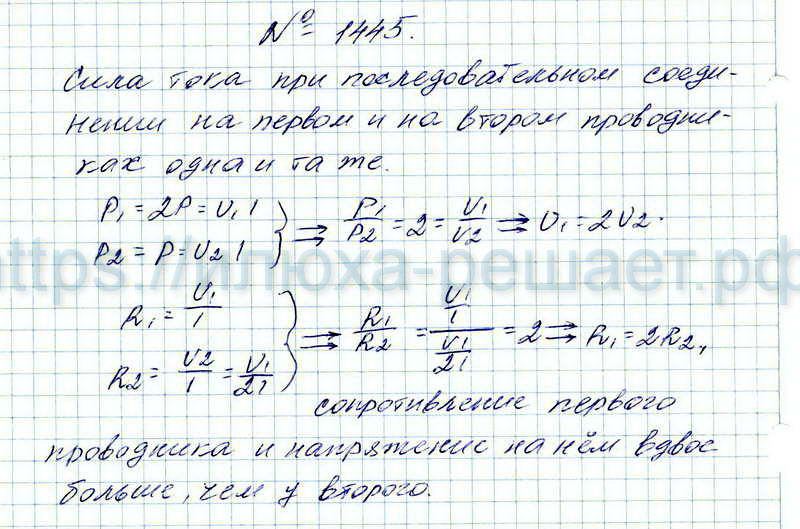 № 1445.
Сила тока при последовательном соеди-
нении на первом и на втором проводни-
ках одна и та же.
P₁ = 2P = U₁ I
P₂ = P = U₂ I } ⇒ P₁/P₂ = 2 = U₁/U₂ ⇒ U₁ = 2U₂.
https://илюха-решает.рф
R₁ = U₁/I
R₂ = U₂/I = U₁/2I } ⇒ R₁/R₂ = (U₁/I)/(U₁/2I) = 2 ⇒ R₁ = 2R₂,
сопротивление первого
проводника и напряжение на нём вдвое
больше, чем у второго.